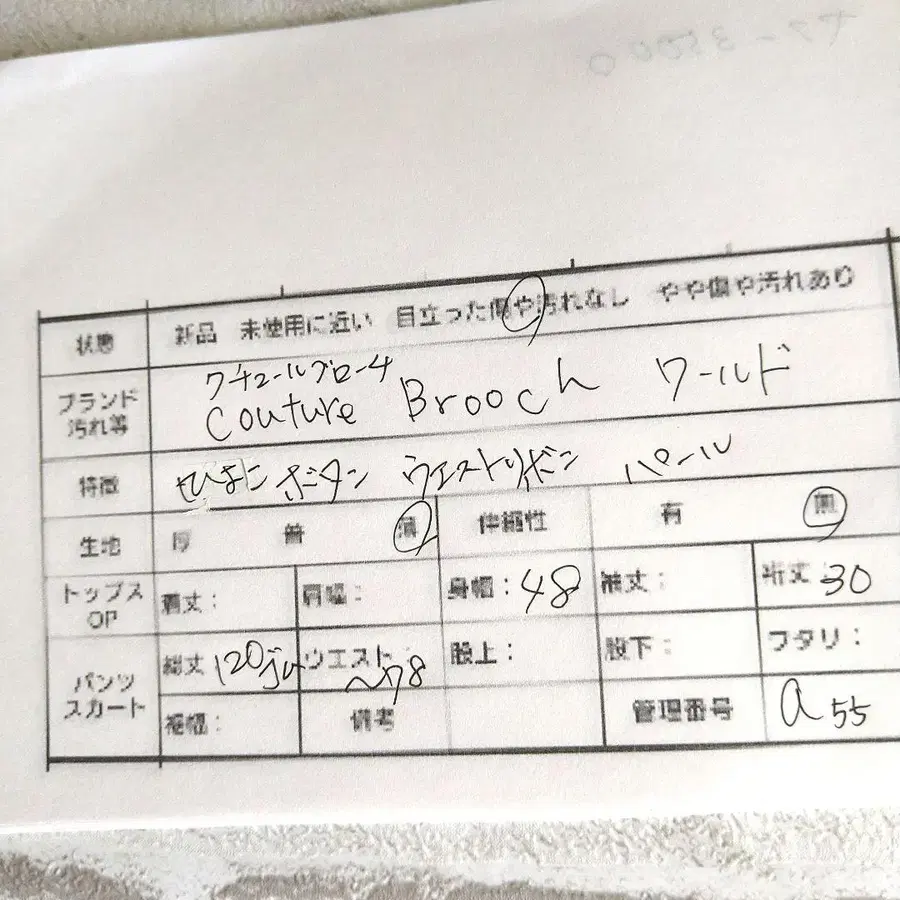 状態 新品 未使用に近い 目立った傷や汚れなし やや傷や汚れあり
クチュールブローチ
ブランド 汚れ等 Couture Brooch ワールド
特徴 ボタン ウエストリボン パール
生地 厚 普 薄 伸縮性 有 無
トップス OP 着丈: 肩幅: 身幅:48 袖丈: 裄丈:30
パンツ スカート 総丈 120 ウエスト:~78 股上: 股下: フタリ:
裾幅: 備考 管理番号 a55